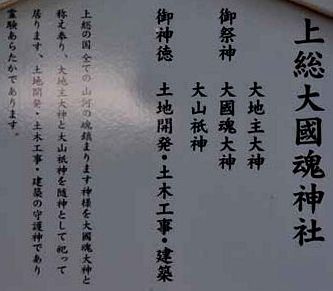 上総大國魂神社
大地主大神
御祭神　大國魂大神
大山祇神
御神徳　土地開発・土木工事・建築
上総の国全ての山河の魂鎮まります神様を大國魂大神と
称え奉り、大地主大神と大山祇神を随神として祀って
居ります。土地開発・土木工事・建築の守護神であり
霊験あらたかであります。